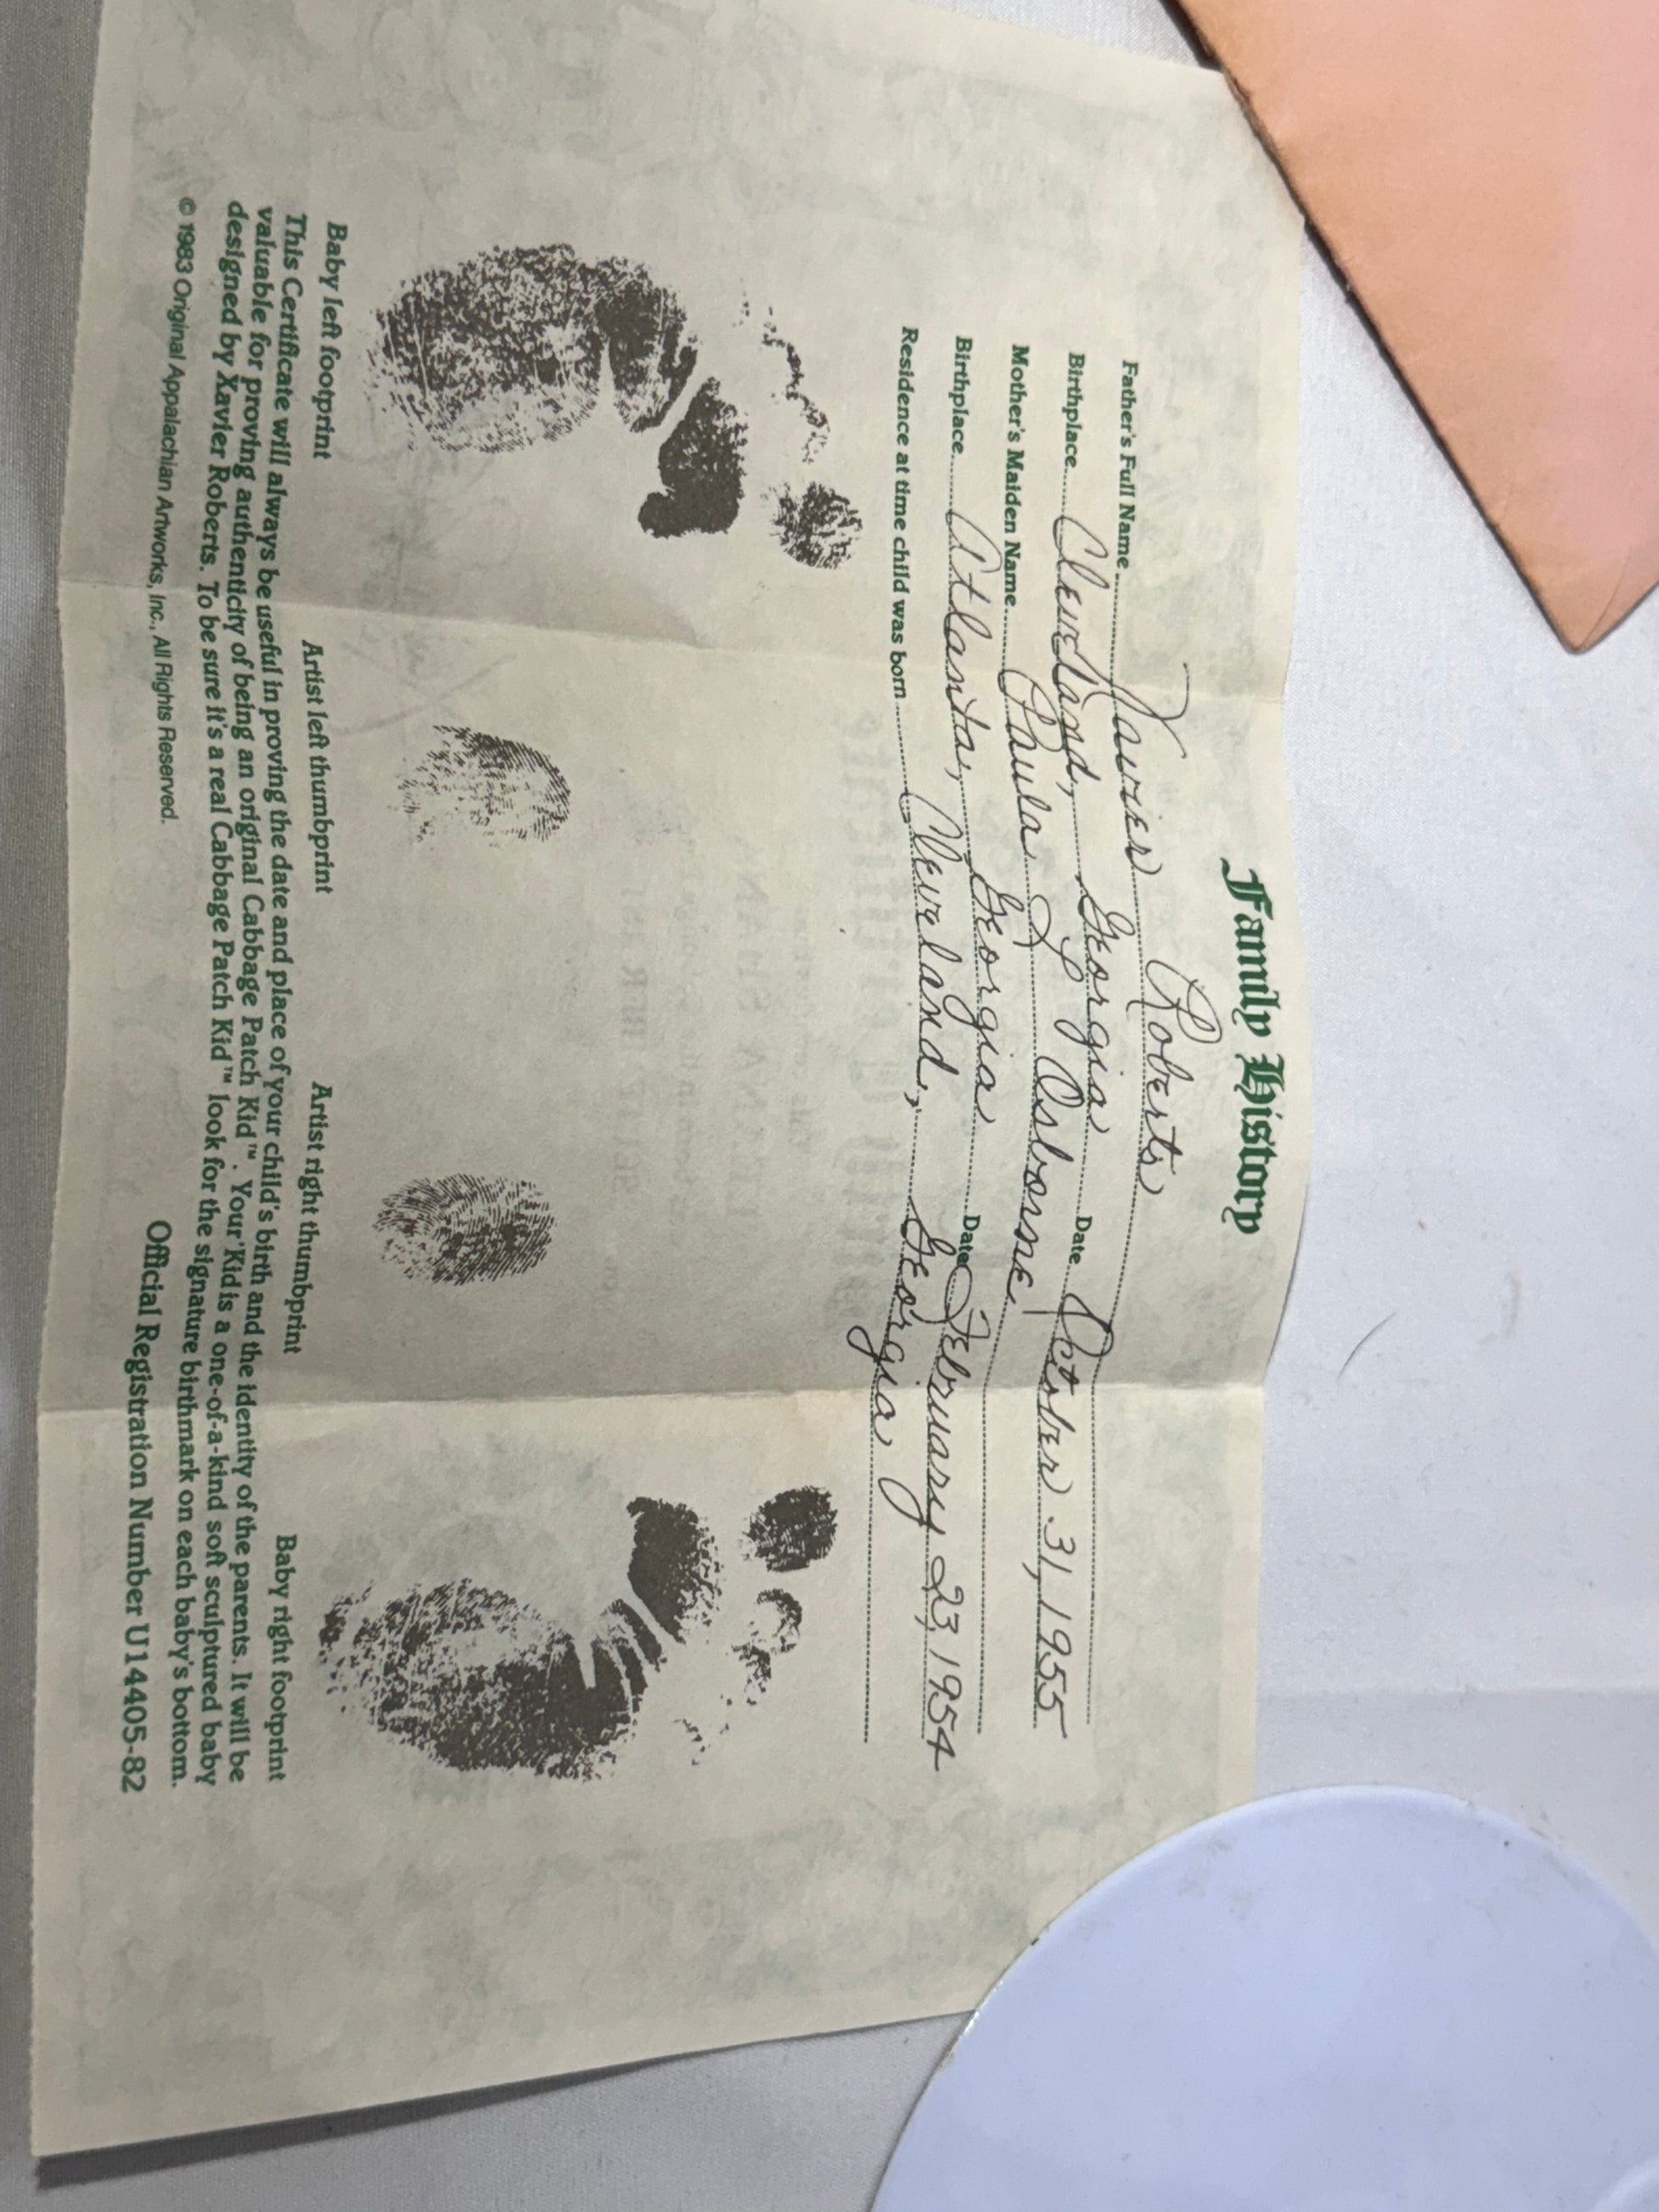 Family History
Father's Full Name Xavier Roberts
Birthplace Cleveland, Georgia Date October 31, 1955
Mother's Maiden Name Paula L Osborne
Birthplace Atlanta, Georgia Date February 23, 1954
Residence at time child was born Cleveland, Georgia
Baby left footprint Artist left thumbprint Artist right thumbprint Baby right footprint
This Certificate will always be useful in proving the date and place of your child's birth and the identity of the parents. It will be
valuable for proving authenticity of being an original Cabbage Patch Kid™. Your 'Kid is a one-of-a-kind soft sculptured baby
designed by Xavier Roberts. To be sure it's a real Cabbage Patch Kid™ look for the signature birthmark on each baby's bottom.
© 1983 Original Appalachian Artworks, Inc., All Rights Reserved.
Official Registration Number U14405-82